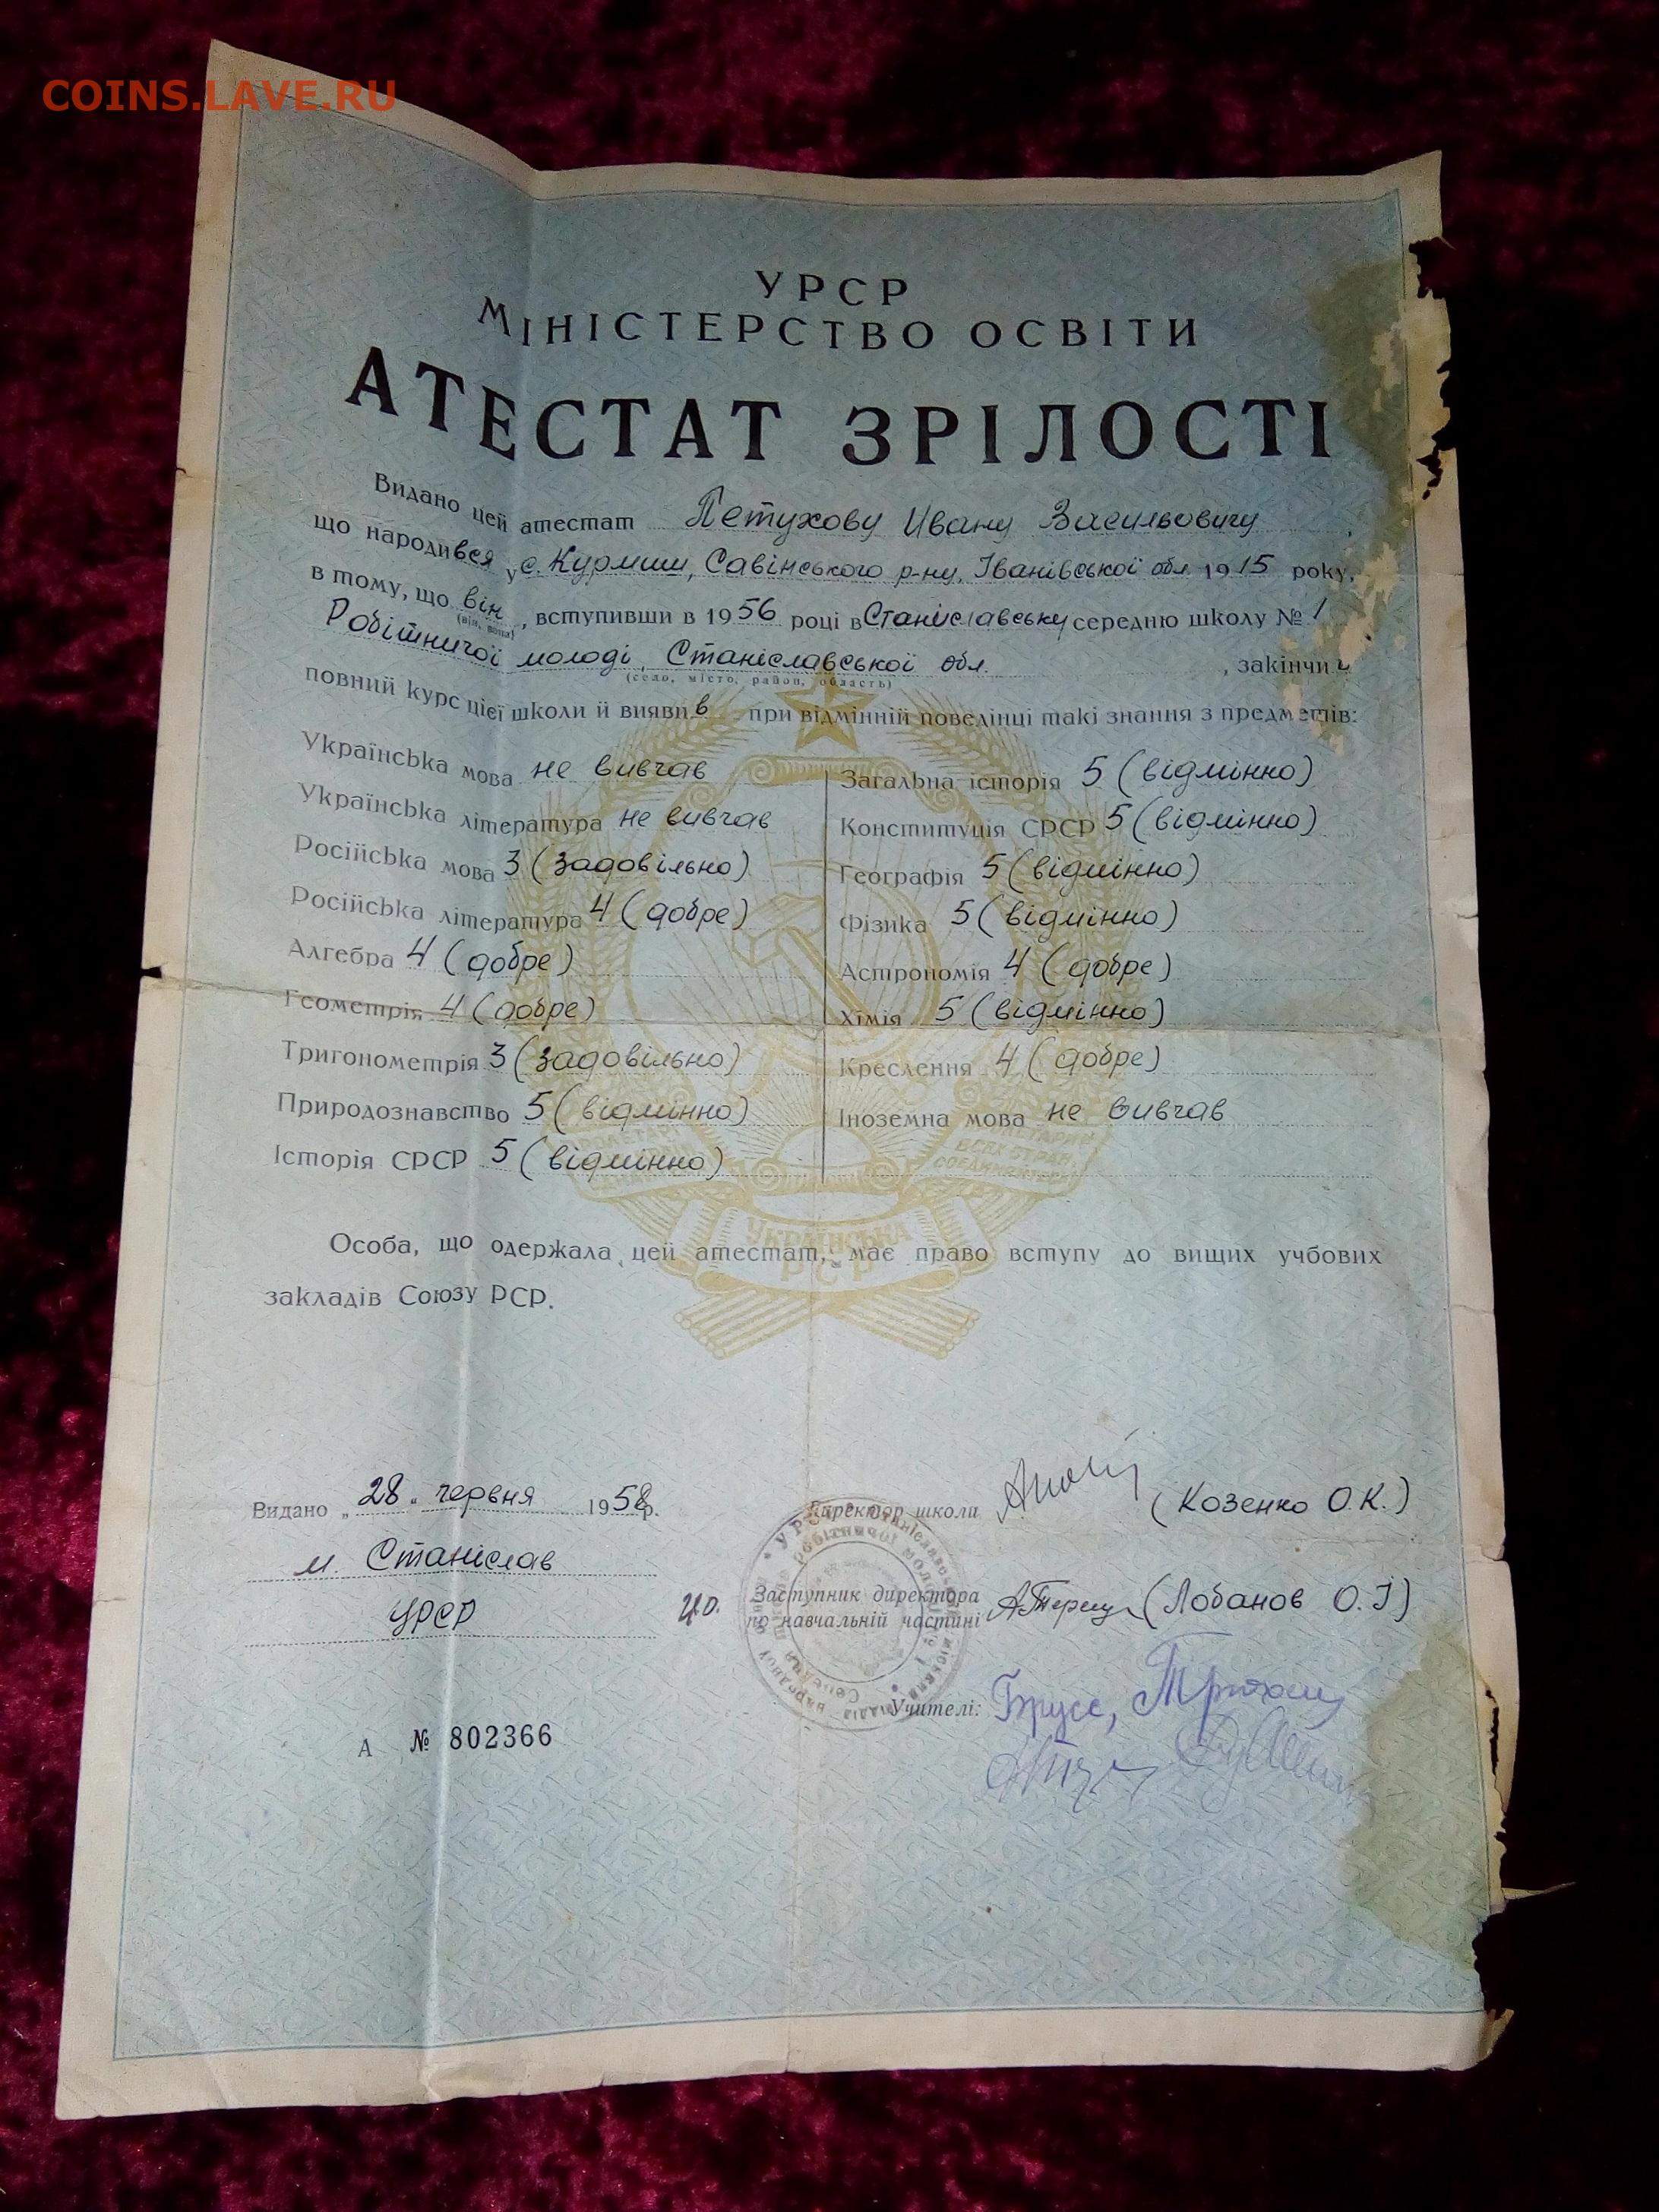 COINS.LAVE.RU
УРСР
МІНІСТЕРСТВО ОСВІТИ
АТЕСТАТ ЗРІЛОСТІ
Видано цей атестат Петухову Ивану Васильовичу,
що народився у с. Курмиш, Савінського р-ну, Іванівської обл. 1915 року,
в тому, що він, вступивши в 1956 році в Станіславську середню школу № 1
(він, вона)
Робітничої молоді, Станіславської обл., закінчив
(село, місто, район, область)
повний курс цієї школи й виявив при відмінній поведінці такі знання з предметів:
Українська мова не вивчав
Українська література не вивчав
Російська мова 3 (задовільно)
Російська література 4 (добре)
Алгебра 4 (добре)
Геометрія 4 (добре)
Тригонометрія 3 (задовільно)
Природознавство 5 (відмінно)
Історія СРСР 5 (відмінно)
Загальна історія 5 (відмінно)
Конституція СРСР 5 (відмінно)
Географія 5 (відмінно)
Фізика 5 (відмінно)
Астрономія 4 (добре)
Хімія 5 (відмінно)
Креслення 4 (добре)
Іноземна мова не вивчав
УКРАЇНСЬКА
РСР
Особа, що одержала цей атестат, має право вступу до вищих учбових
закладів Союзу РСР.
Видано „28" червня 1958 р.
м. Станіслав
УРСР
А № 802366
Директор школи (Козенко О.К.)
Заступник директора
по навчальній частині (Лобанов О.І)
Учителі: